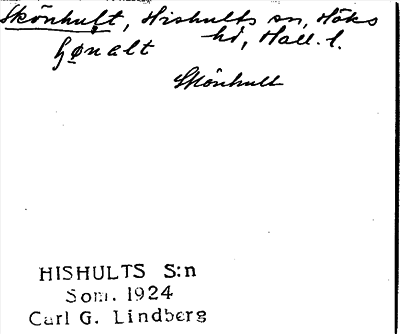 Skönhult, Hishults sn, Höks
hd, Hall. l.
Skönhult
HISHULTS S:n
Som. 1924
Carl G. Lindberg